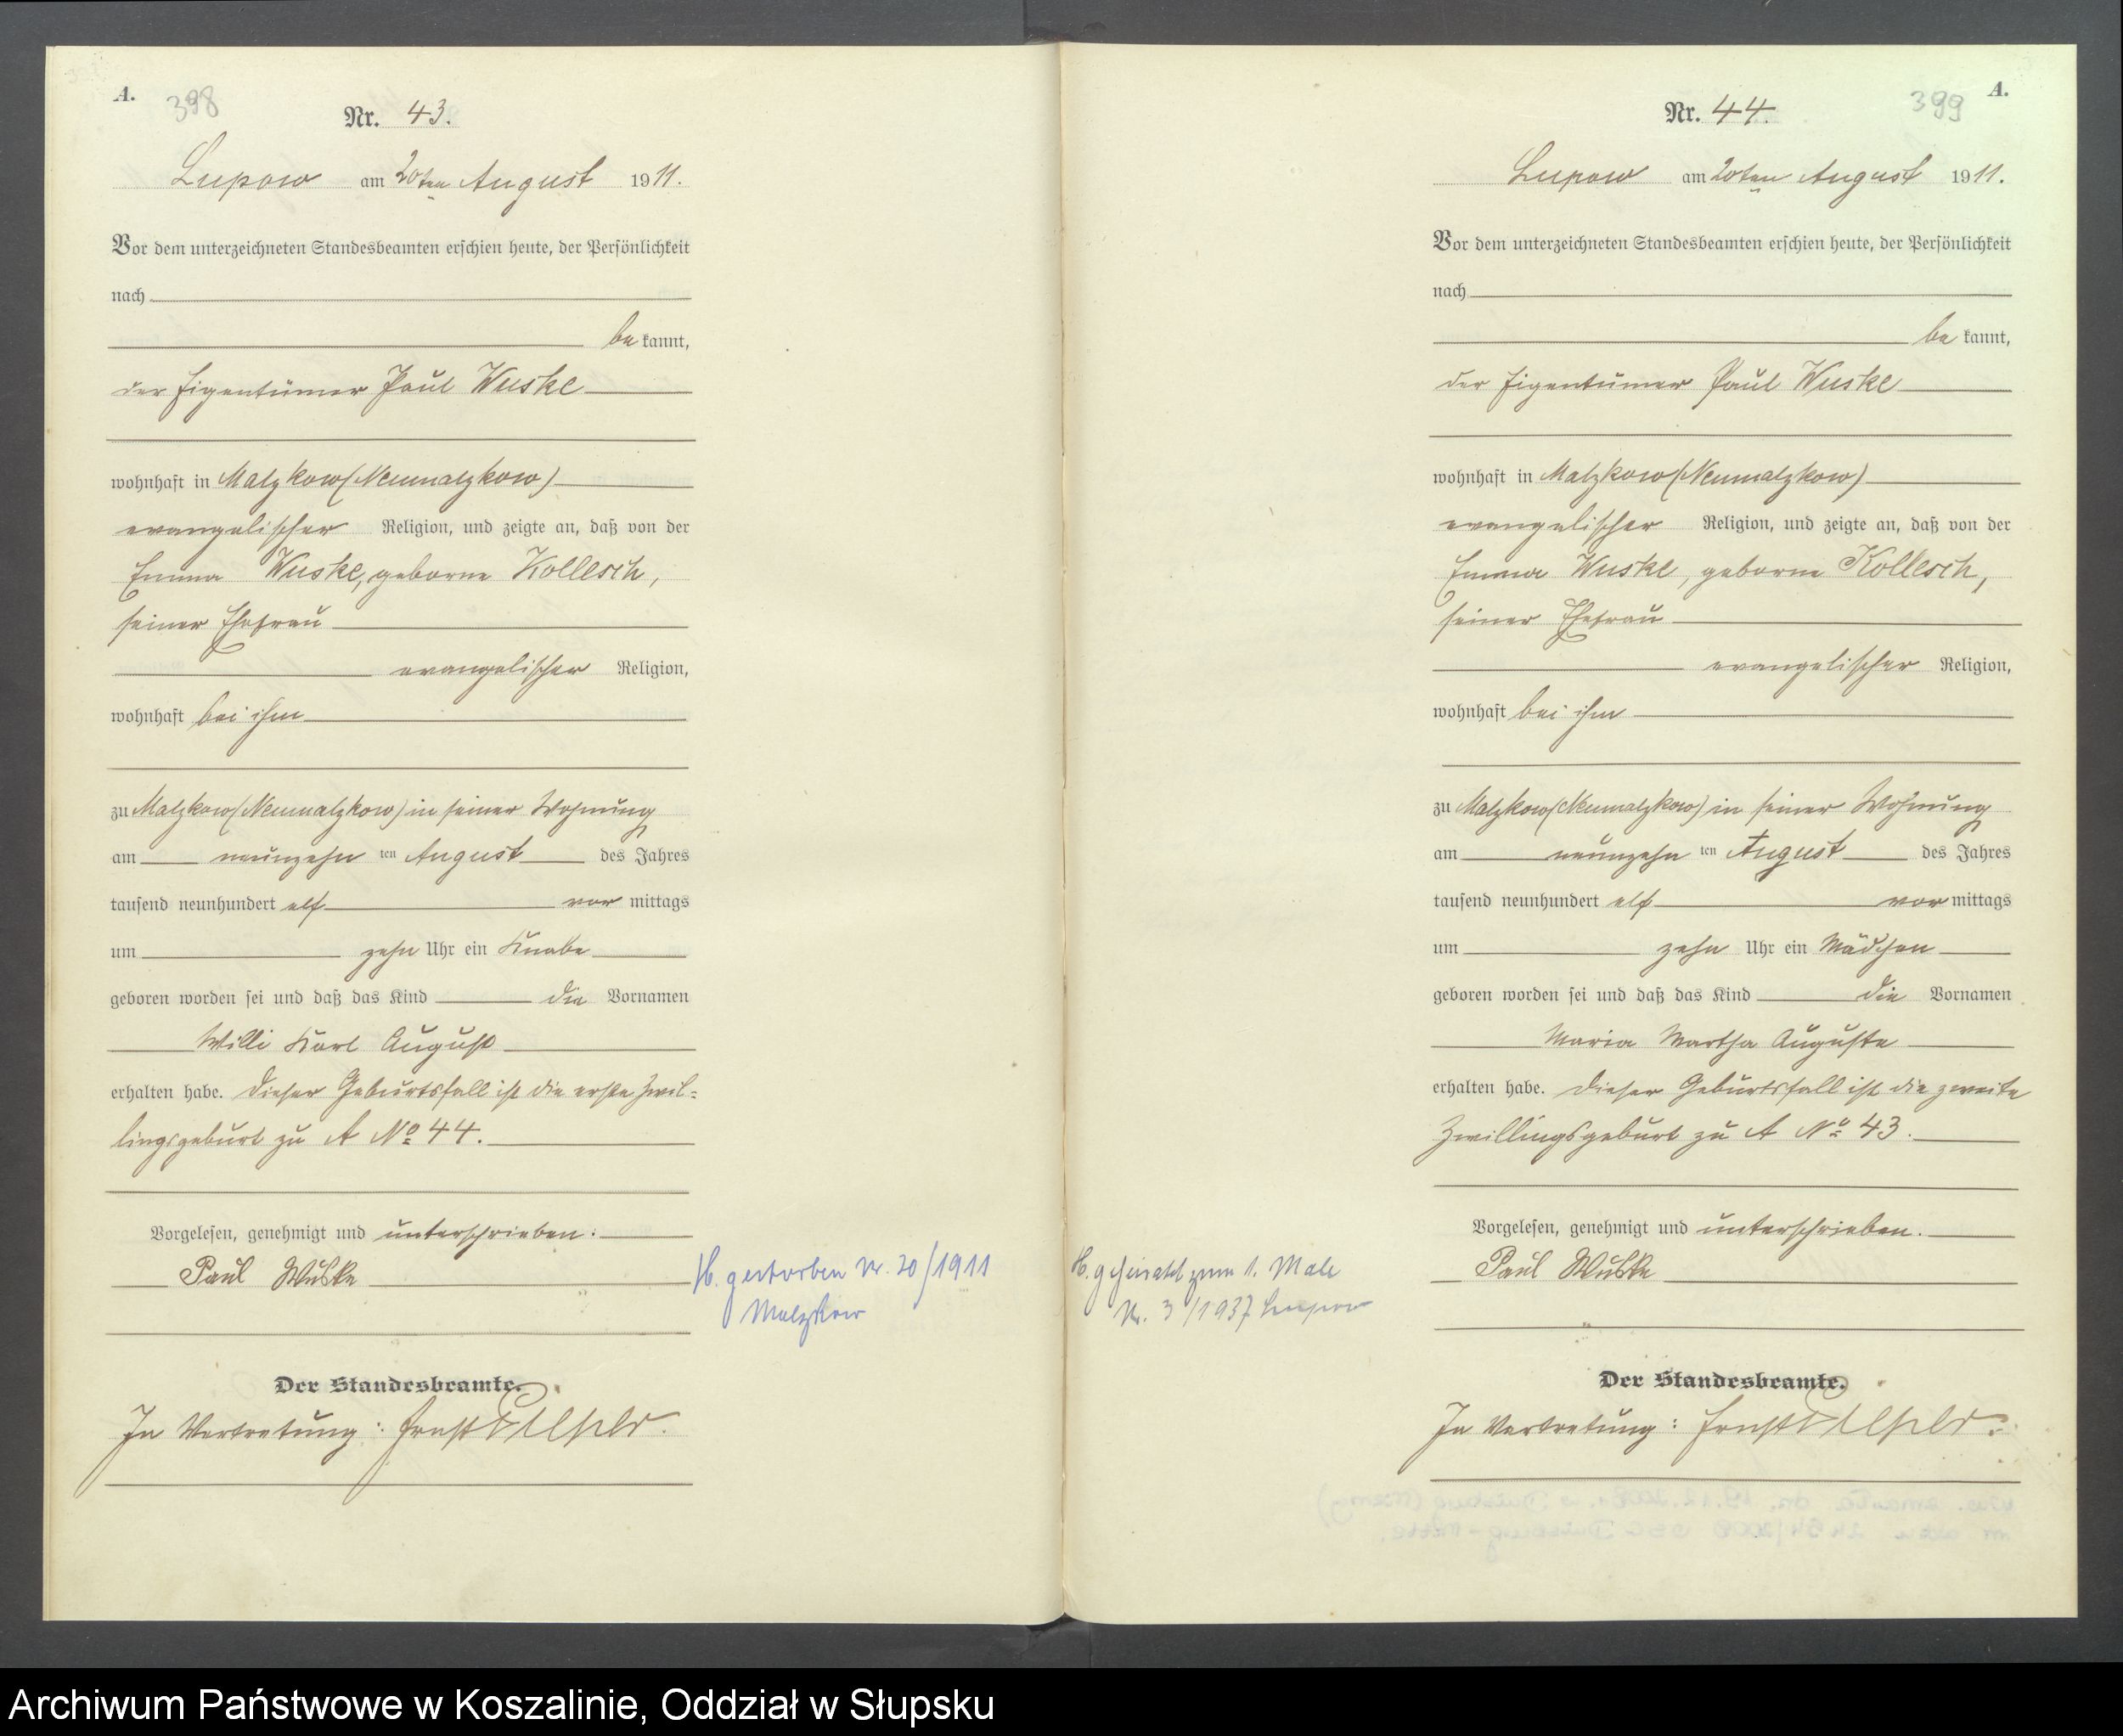 A. 398
Nr. 43.
Lupow am 20ten August 1911.
Vor dem unterzeichneten Standesbeamten erschien heute, der Persönlichkeit
nach
be kannt,
der Eigentümer Paul Wuske
wohnhaft in Malzkow (Neumalzkow)
evangelischer Religion, und zeigte an, daß von der
Emma Wuske, geborne Kollesch,
seiner Ehefrau
evangelischer Religion,
wohnhaft bei ihm
zu Malzkow (Neumalzkow) in seiner Wohnung
am neunzehn ten August des Jahres
tausend neunhundert elf vor mittags
um zehn Uhr ein Knabe
geboren worden sei und daß das Kind die Vornamen
Willi Karl August
erhalten habe. Dieser Geburtsfall ist die erste Zwil-
lingsgeburt zu A No 44.
Vorgelesen, genehmigt und unterschrieben:
Paul Wuske
H. gestorben Nr. 20/1911
Malzkow
Der Standesbeamte.
In Vertretung: Ernst
399 A.
Nr. 44.
Lupow am 20ten August 1911.
Vor dem unterzeichneten Standesbeamten erschien heute, der Persönlichkeit
nach
be kannt,
der Eigentümer Paul Wuske
wohnhaft in Malzkow (Neumalzkow)
evangelischer Religion, und zeigte an, daß von der
Emma Wuske, geborne Kollesch,
seiner Ehefrau
evangelischer Religion,
wohnhaft bei ihm
zu Malzkow (Neumalzkow) in seiner Wohnung
am neunzehn ten August des Jahres
tausend neunhundert elf vor mittags
um zehn Uhr ein Mädchen
geboren worden sei und daß das Kind die Vornamen
Maria Martha Auguste
erhalten habe. Dieser Geburtsfall ist die zweite
Zwillingsgeburt zu A No 43.
Vorgelesen, genehmigt und unterschrieben.
Paul Wuske
H. geheiratet zum 1. Male
Nr. 3/1937 Lupow
Der Standesbeamte.
In Vertretung: Ernst
Archiwum Państwowe w Koszalinie, Oddział w Słupsku